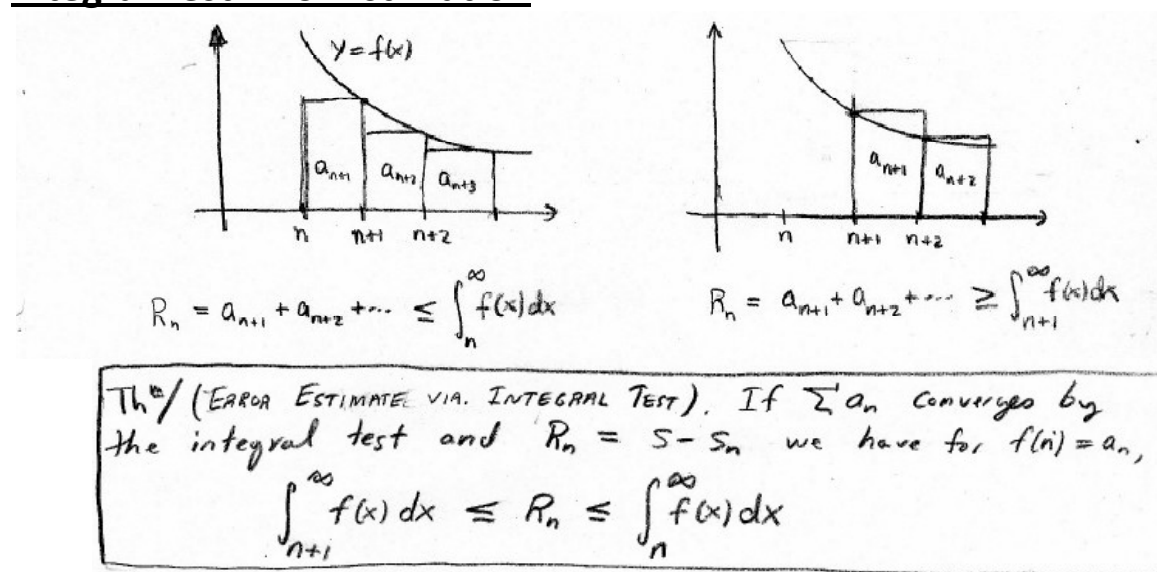 y = f(x)
aₙ₊₁ aₙ₊₂ aₙ₊₃
n n+1 n+2
Rₙ = aₙ₊₁ + aₙ₊₂ + ··· ≤ ∫ₙ^∞ f(x) dx
aₙ₊₁ aₙ₊₂
n n+1 n+2
Rₙ = aₙ₊₁ + aₙ₊₂ + ··· ≥ ∫ₙ₊₁^∞ f(x) dx
Thᵐ/ (ERROR ESTIMATE VIA. INTEGRAL TEST). If Σ aₙ converges by
the integral test and Rₙ = S - Sₙ we have for f(n) = aₙ,
∫ₙ₊₁^∞ f(x) dx ≤ Rₙ ≤ ∫ₙ^∞ f(x) dx